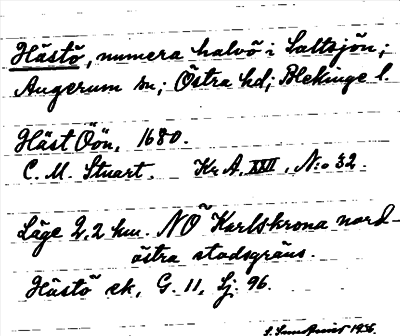 Hästö, numera halvö i Saltsjön;
Augerum sn; Östra hd; Blekinge l.
Häst Öön, 1680.
C. M. Stuart. Kr. A. XXII, N:o 32.
Läge 2,2 km. NO Karlskrona nord-
östra stadsgräns.
Hästö ek, G. 11, Sj. 96.
1936